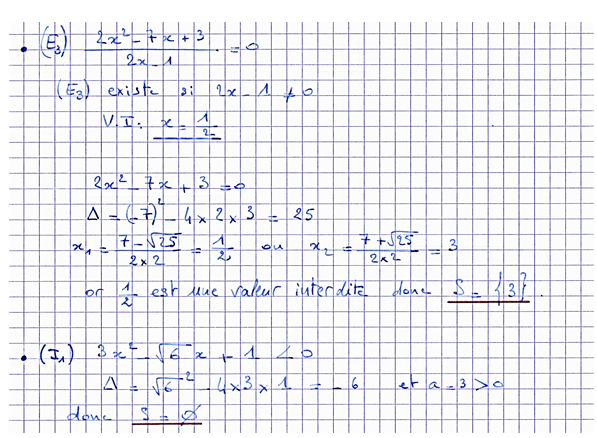 • (E₃) (2x² - 7x + 3)/(2x - 1) = 0
(E₃) existe si 2x - 1 ≠ 0
V.I: x = 1/2
2x² - 7x + 3 = 0
Δ = (-7)² - 4 × 2 × 3 = 25
x₁ = (7 - √25)/(2×2) = 1/2 ou x₂ = (7 + √25)/(2×2) = 3
or 1/2 est une valeur interdite donc S = {3}.
• (I₁) 3x² - √6 x + 1 < 0
Δ = √6² - 4×3×1 = -6 et a = 3 > 0
donc S = ∅